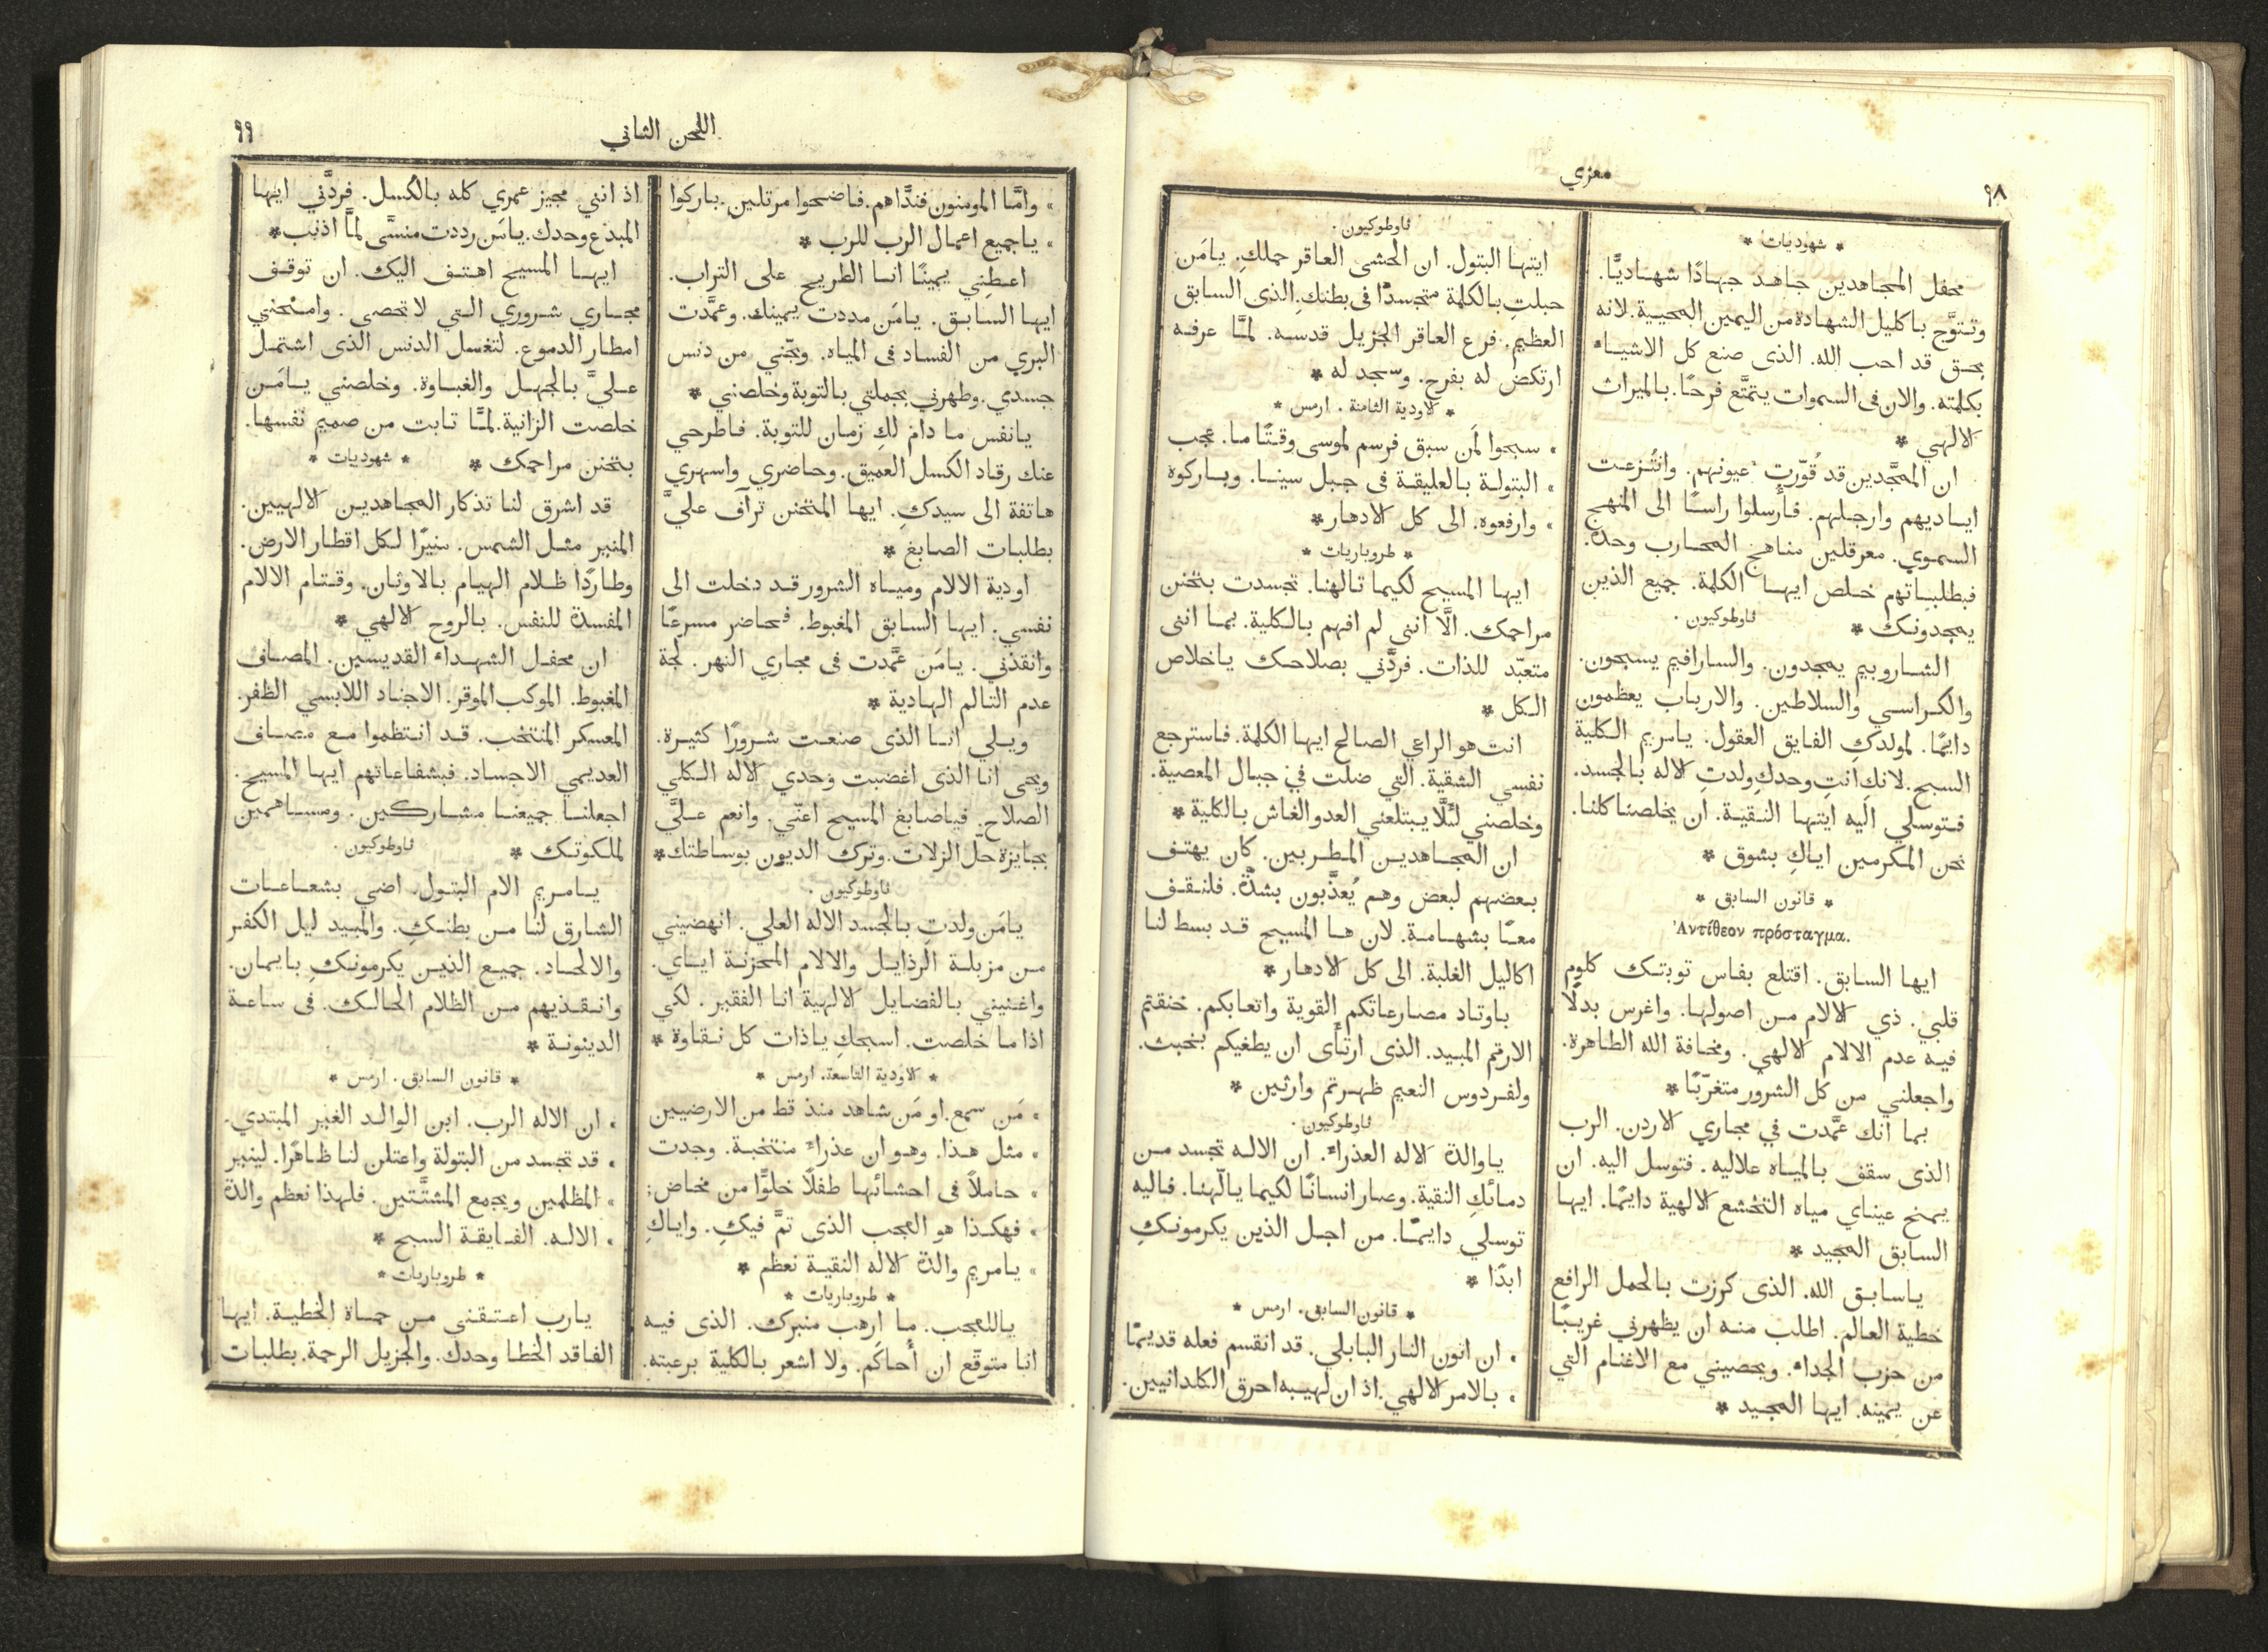 ٩٨
معزي
* شهوديات *
محفل المجاهدين جاهد جهادًا شهاديًّا.
وتتوَّج باكليل الشهادة من اليمين المحيية. لانه
بحق قد احب الله. الذى صنع كل الاشياء
بكلمته. والان فى السموات يتمتَّع فرحًا. بالميراث
الالهي *
ان الممجَّدين قد قُوّرت عيونهم. وانتُزعت
اياديهم وارجلهم. فأرسلوا راسًا الى المنهج
السموي. معرقلين مناهج المحارب وحدهُ.
فبطلباتهم خلص ايها الكلمة. جميع الذين
يمجدونك *
ثاوطوكيون.
الشاروبيم يمجدون. والسارافيم يسبحون.
والكراسي والسلاطين. والارباب يعظمون
دايمًا. لمولدكِ الفايق العقول. يامريم الكلية
السبح. لانكِ انتِ وحدكِ ولدتِ الاله بالجسد.
فتوسلي اليه ايتها النقية. ان يخلصنا كلنا.
نحن المكرمين اياكِ بشوق *
* قانون السابق *
Ἀντίθεον πρόσταγμα.
ايها السابق. اقتلع بفاس توبتك كلوم
قلبي. ذي الالام من اصولها. واغرس بدلًا
فيه عدم الالام الالهي. ومخافة الله الطاهرة.
واجعلني من كل الشرور متغرّبًا *
بما انك عمَّدت في مجاري الاردن. الرب
الذى سقف بالمياه علاليه. فتوسل اليه. ان
يمنح عيناي مياه التخشع الالهية دايمًا. ايها
السابق المجيد *
ياسابق الله. الذى كرزت بالحمل الرافع
خطية العالم. اطلب منه ان يظهرني غريبًا
من حزب الجداء. ويحصيني مع الاغنام التي
عن يمينه. ايها المجيد *
ثاوطوكيون.
ايتها البتول. ان الحشى العاقر حملكِ. يامَن
حبلتِ بالكلمة متجسدًا فى بطنكِ. الذى السابق
العظيم. فرع العاقر الجزيل قدسه. لمَّا عرفه
ارتكض له بفرح. وسجد له *
* الاودية الثامنة. ارمس *
» سبحوا لمَن سبق فرسم لموسى وقتًا ما. عجب
» البتولة بالعليقة فى جبل سينا. وباركوه
» وارفعوه. الى كل الادهار *
* طروباريات *
ايها المسيح لكيما تالهنا. تجسدت بتحنن
مراحمك. الَّا انني لم افهم بالكلية. بما اننى
متعبّد للذات. فردَّني بصلاحك ياخلاص
الكل *
انت هو الراعي الصالح ايها الكلمة. فاسترجع
نفسي الشقية. التي ضلت في جبال المعصية.
وخلصني لئلَّا يبتلعني العدو الغاش بالكلية *
ان المجاهدين المطربين. كان يهتف
بعضهم لبعض وهم يُعذَّبون بشدَّة. فلنقف
معًا بشهامة. لان ها المسيح قد بسط لنا
اكاليل الغلبة. الى كل الادهار *
باوتاد مصارعاتكم القوية واتعابكم. خنقتم
الارقم المبيد. الذى ارتأى ان يطغيكم بخبث.
ولفردوس النعيم ظهرتم وارثين *
ثاوطوكيون.
ياوالدة الاله العذراء. ان الاله تجسد من
دمائكِ النقية. وصار انسانًا لكيما يالّهنا. فاليه
توسلي دايمًا. من اجل الذين يكرمونكِ
ابدًا *
* قانون السابق. ارمس *
» ان اتون النار البابلي. قد انقسم فعله قديمًا
» بالامر الالهي. اذ ان لهيبه احرق الكلدانيين.
اللحن الثاني
٩٩
» وامَّا المومنون فندَّاهم. فاضحوا مرتلين. باركوا
» ياجميع اعمال الرب للرب *
اعطِني يمينًا انا الطريح على التراب.
ايها السابق. يامَن مددت يمينك. وعمَّدت
البري من الفساد فى المياه. ونجّني من دنس
جسدي. وطهرني بجملتي بالتوبة وخلصني *
يانفس ما دام لكِ زمان للتوبة. فاطرحي
عنك رقاد الكسل العميق. وحاضري واسهري
هاتفة الى سيدكِ. ايها المتحنن ترآف عليَّ
بطلبات الصابغ *
اودية الالام ومياه الشرور قد دخلت الى
نفسي. ايها السابق المغبوط. فحاضر مسرعًا
وانقذني. يامَن عمَّدت فى مجاري النهر. لجة
عدم التالم الهادية *
ويلي انا الذى صنعت شرورًا كثيرة.
ويحى انا الذى اغضبت وحدي الاله الكلي
الصلاح. فياصابغ المسيح اعنّي. وانعم عليَّ
بجايزة حلّ الزلات. وترك الديون بوساطتك *
ثاوطوكيون.
يامَن ولدتِ بالجسد الاله العلي. انهضيني
من مزبلة الرذايل والالام المحزنة اياي.
واغنيني بالفضايل الالهية انا الفقير. لكي
اذا ما خلصت. اسبحكِ ياذات كل نقاوة *
* الاودية التاسعة. ارمس *
» مَن سمع. او مَن شاهد منذ قط من الارضيين
» مثل هذا. وهو ان عذراء منتخبة. وجدت
» حاملًا فى احشائها طفلًا خلوًّا من مخاض:
» فهكذا هو العجب الذى تمَّ فيكِ. واياكِ
» يامريم والدة الاله النقية نعظم *
* طروباريات *
ياللعجب. ما ارهب منبرك. الذى فيه
انا متوقّع ان أُحاكَم. ولا اشعر بالكلية برعبته.
اذ انني مجيز عمري كله بالكسل. فردَّني ايها
المبدع وحدك. يامَن رددت منسَّى لمَّا اذنب *
ايها المسيح اهتف اليك. ان توقف
مجاري شروري التي لا تحصى. وامنحني
امطار الدموع. لتغسل الدنس الذى اشتمل
عليَّ بالجهل والغباوة. وخلصني يامَن
خلصت الزانية. لمَّا تابت من صميم نفسها.
بتحنن مراحمك *
* شهوديات *
قد اشرق لنا تذكار المجاهدين الالهيين.
المنير مثل الشمس. منيرًا لكل اقطار الارض.
وطاردًا ظلام الهيام بالاوثان. وقتام الالام
المفسدة للنفس. بالروح الالهي *
ان محفل الشهداء القديسين. المصاف
المغبوط. الموكب الموقر. الاجناد اللابسي الظفر.
المعسكر المنتخب. قد انتظموا مع مصاف
العديمي الاجساد. فبشفاعاتهم ايها المسيح.
اجعلنا جميعنا مشاركين. ومساهمين
لملكوتك *
ثاوطوكيون.
يامريم الام البتول. اضي بشعاعات
الشارق لنا من بطنكِ. والمبيد ليل الكفر
والالحاد. جميع الذين يكرمونكِ بايمان.
وانقذيهم من الظلام الحالك. فى ساعة
الدينونة *
* قانون السابق. ارمس *
» ان الاله الرب. ابن الوالد الغير المبتدي.
» قد تجسد من البتولة واعتلن لنا ظاهرًا. لينير
» المظلمين ويجمع المشتَّتين. فلهذا نعظم والدة
» الاله. الفايقة السبح *
* طروباريات *
يارب اعتقني من حماة الخطية. ايها
الفاقد الخطا وحدك. والجزيل الرحمة. بطلبات